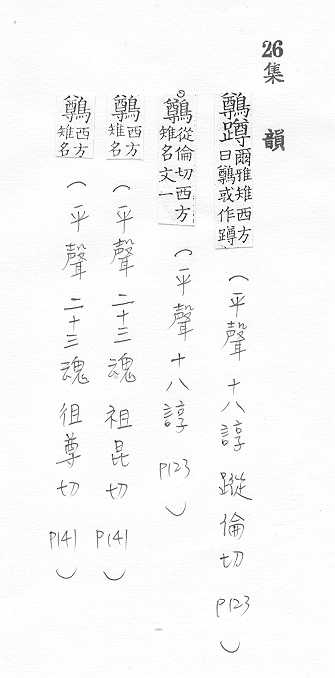 26 集韻
鷷蹲爾雅雉西方曰鷷或作蹲(平聲十八諄 蹤倫切 P123)
鷷從倫切西方雉名文一(平聲十八諄 P123)
鷷西方雉名(平聲二十三魂 祖昆切 P141)
鷷西方雉名(平聲二十三魂 徂尊切 P141)